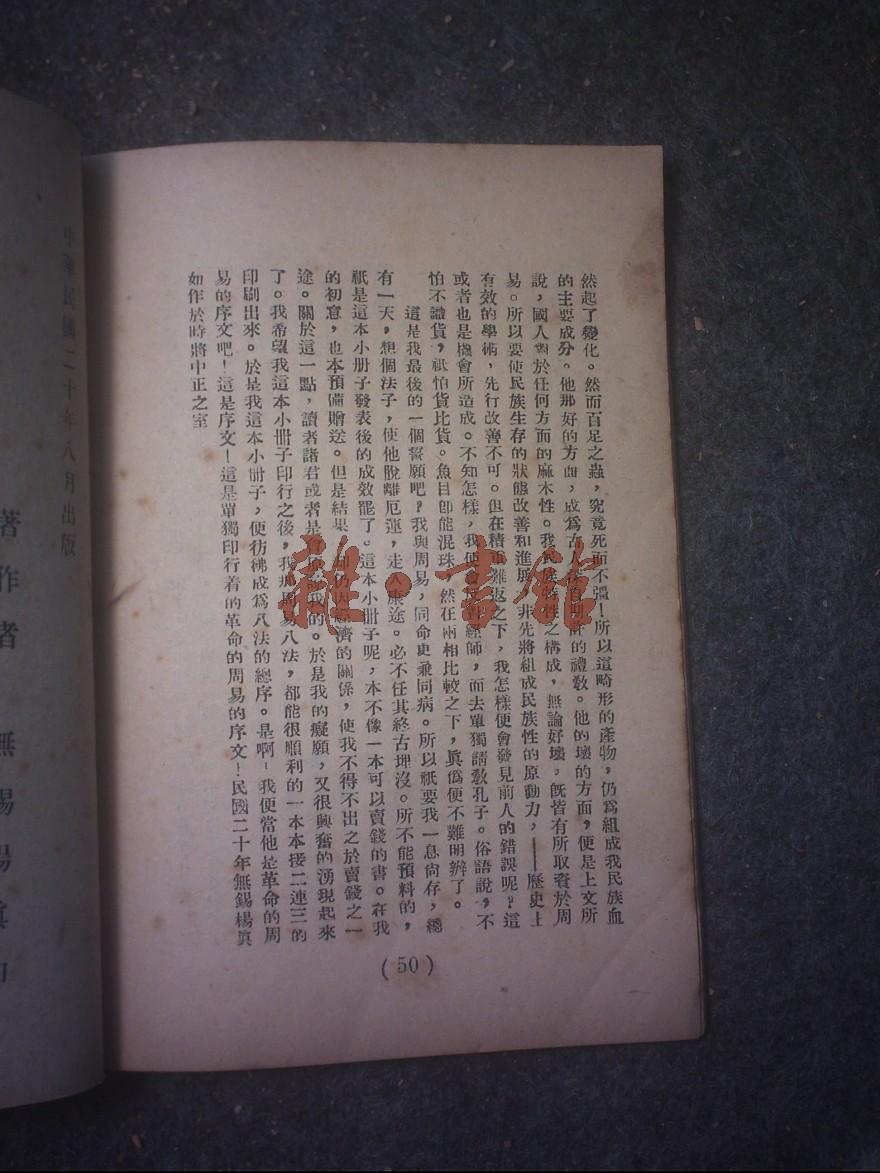 然起了變化。然而百足之蟲，究竟死而不彊！所以這畸形的產物，仍爲組成我民族血
的主要成分。他那好的方面，成爲古人自期許的禮敎。他的壞的方面，便是上文所
說，國人對於任何方面的麻木性。我民族特性之構成，無論好壞，旣皆有所取資於周
易。所以要使民族生存的狀態改善和進展，非先將組成民族性的原動力，——歷史上
有效的學術，先行改善不可。但在積重難返之下，我怎樣便會發見前人的錯誤呢？這
或者也是機會所造成。不知怎樣，我便會經師，而去單獨請敎孔子。俗語說，不
怕不識貨，祇怕貨比貨。魚目卽能混珠，然在兩相比較之下，眞僞便不難明辨了。
這是我最後的一個誓願吧？我與周易，同命更兼同病。所以祇要我一息尙存，總
有一天，想個法子，使他脫離厄運，走入康途。必不任其終古埋沒。所不能預料的，
祇是這本小册子發表後的成效罷了。這本小册子呢，本不像一本可以賣錢的書。在我
的初意，也本預備贈送。但是結果，却仍因經濟的關係，使我不得不出之於賣錢之一
途。關於這一點，讀者諸君或者是會原諒我的。於是我的癡願，又很興奮的湧現起來
了。我希望我這本小册子印行之後，我那周易八法，都能很順利的一本本接二連三的
印刷出來。於是我這本小册子，便彷彿成爲八法的總序。是啊！我便當他是革命的周
易的序文吧！這是序文！這是單獨印行着的革命的周易的序文！民國二十年無錫楊眞
如作於時將中正之室
(50)
中華民國二十年八月出版
著作者 無錫楊眞如
雜·書館